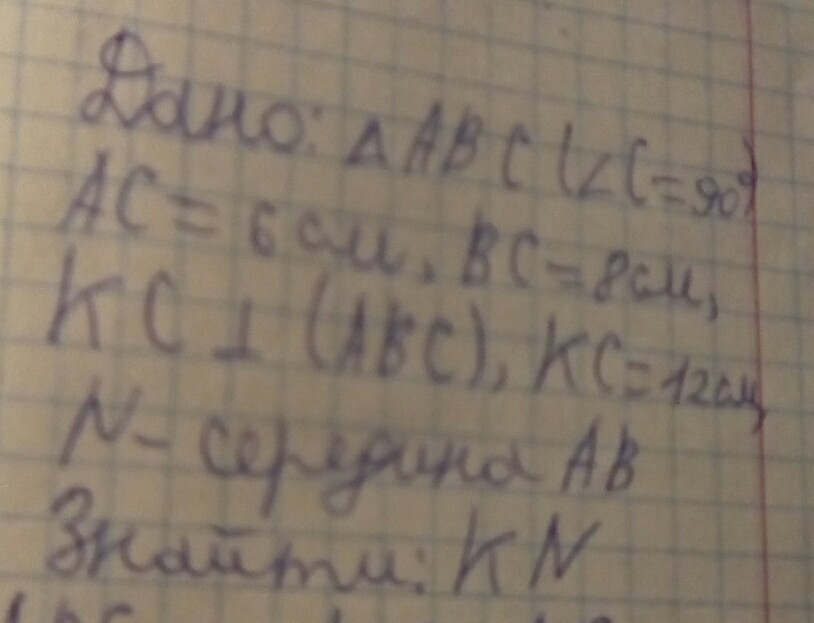 Дано: △ABC (∠C=90°)
AC = 6 см, BC=8см,
KC ⊥ (ABC), KC=12см,
N- середина AB
Знайти: KN